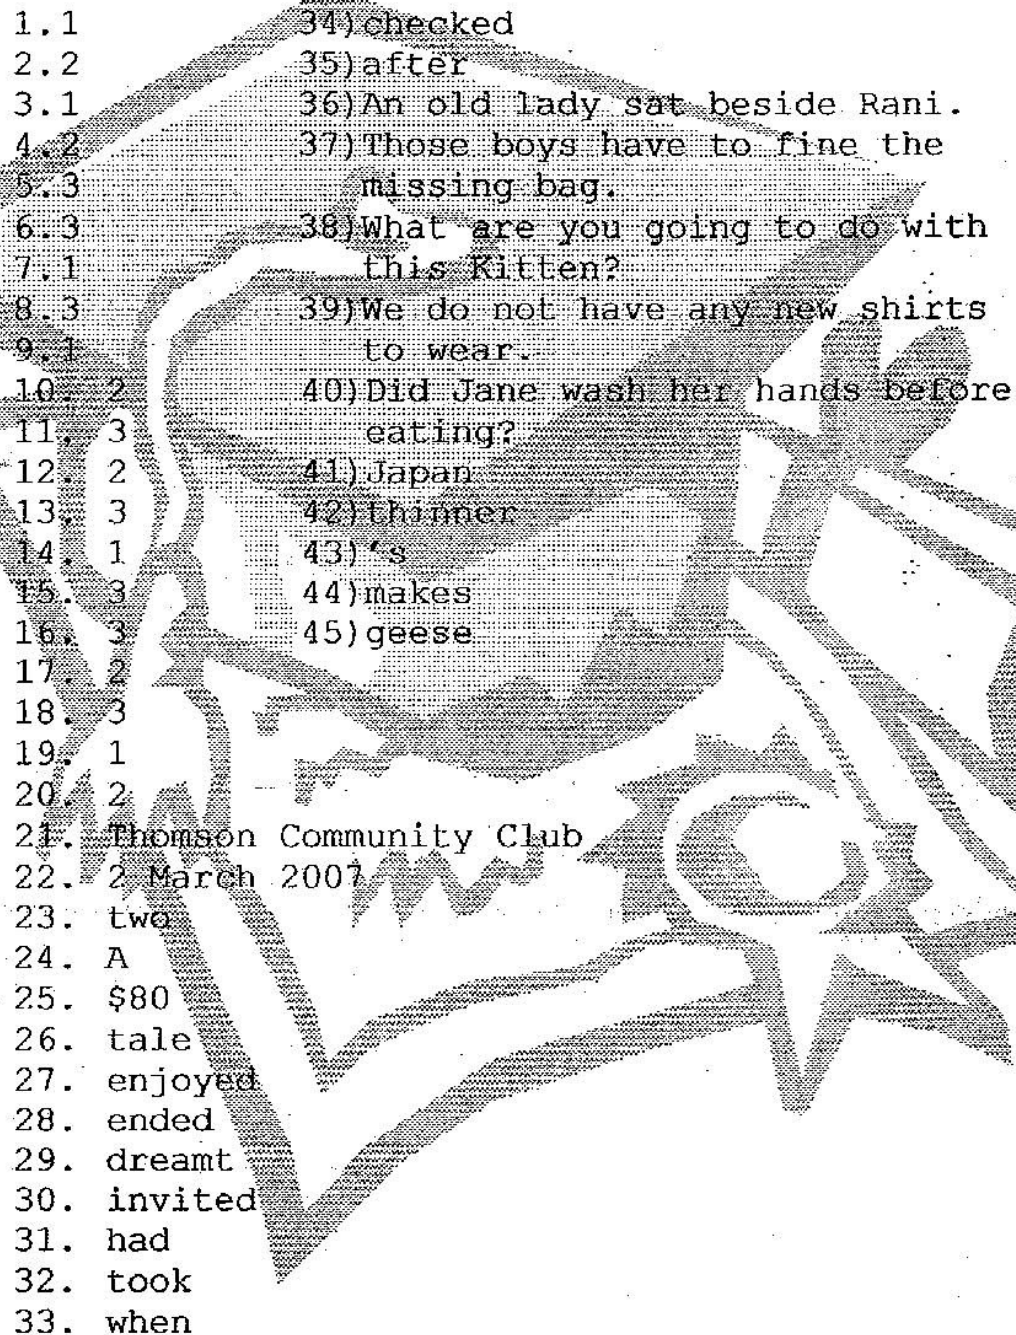 1.1
2.2
3.1
4.2
5.3
6.3
7.1
8.3
9.1
10. 2
11. 3
12. 2
13. 3
14. 1
15. 3
16. 3
17. 2
18. 3
19. 1
20. 2
21. Thomson Community Club
22. 2 March 2007
23. two
24. A
25. $80
26. tale
27. enjoyed
28. ended
29. dreamt
30. invited
31. had
32. took
33. when
34)checked
35)after
36)An old lady sat beside Rani.
37)Those boys have to fine the
missing bag.
38)What are you going to do with
this Kitten?
39)We do not have any new shirts
to wear.
40)Did Jane wash her hands before
eating?
41)Japan
42)thinner
43)‘s
44)makes
45)geese